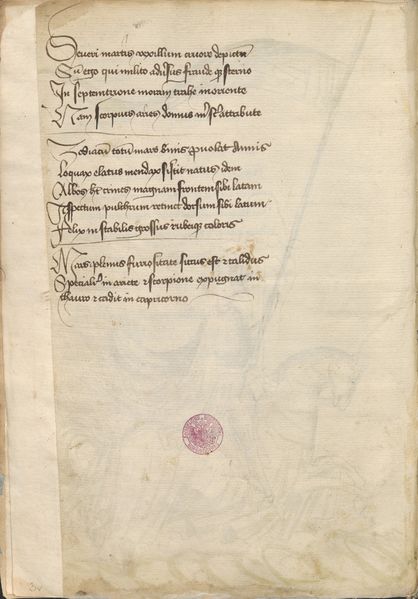 Severi martis vexillum cruore depictum
Sū ergo qui milito aduͥsus fraude qͥ sterno
In septentrione moram trahe in oriente
Nam scorpius aries domus in sͥt attribute
Zodiacū totū mars binis ꝑvolat annis
Loquax elatus mendax sistit natus idem
Albos hͥt crines magnam frontem sibi latam
Aspectum pulchrum retinet dorsum sibi latum
Felix instabilis grossus rubeiqꝫ coloris
Mars plenus furiositate siccus est et calidus
Specialiͥ in ariete et scorpione expugnat in
thauro et cadit in capricorno